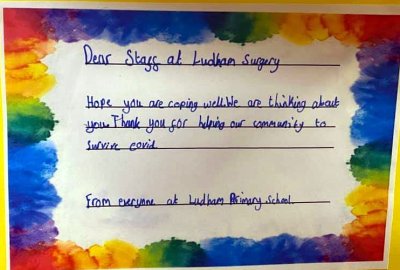 Dear Staff at Ludham Surgery
Hope you are coping well. We are thinking about
you. Thank you for helping our community to
survive covid.
From everyone at Ludham Primary School.